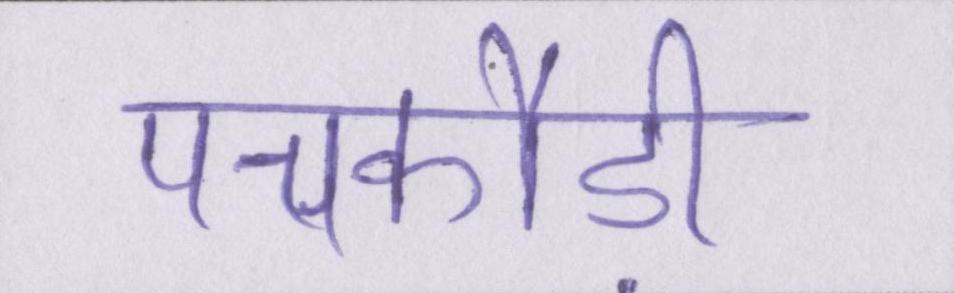 पचकौड़ी